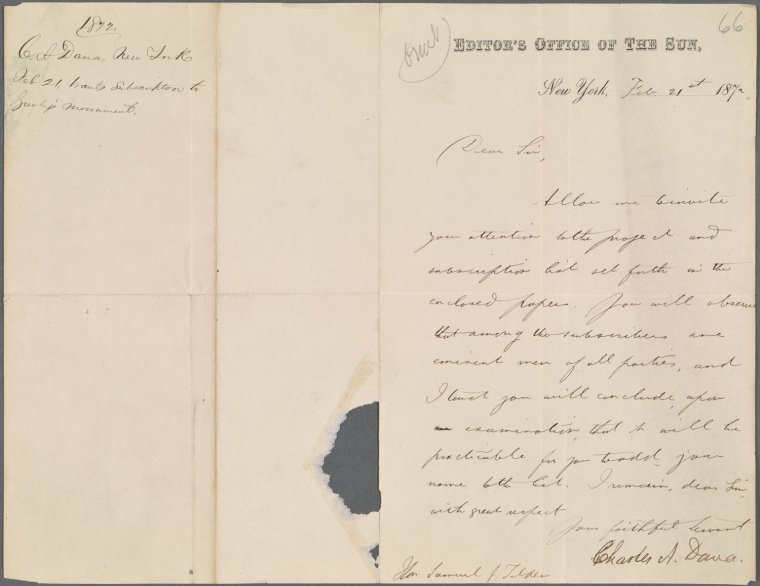 1872.
C. A Dana, New York
Feb 21, wants subscription to
monument.
omit
66
EDITOR'S OFFICE OF THE SUN,
New York, Feb. 21st 1872
Dear Sir,
Allow me to invite
your attention to the project and
subscription list set forth in the
enclosed papers. You will observe
that among the subscribers are
eminent men of all parties, and
I trust you will conclude, upon
examination, that it will be
practicable for you to add your
name to the list. I remain, dear Sir,
with great respect
Your faithful servant
Charles A. Dana.
Hon Samuel J Tilden